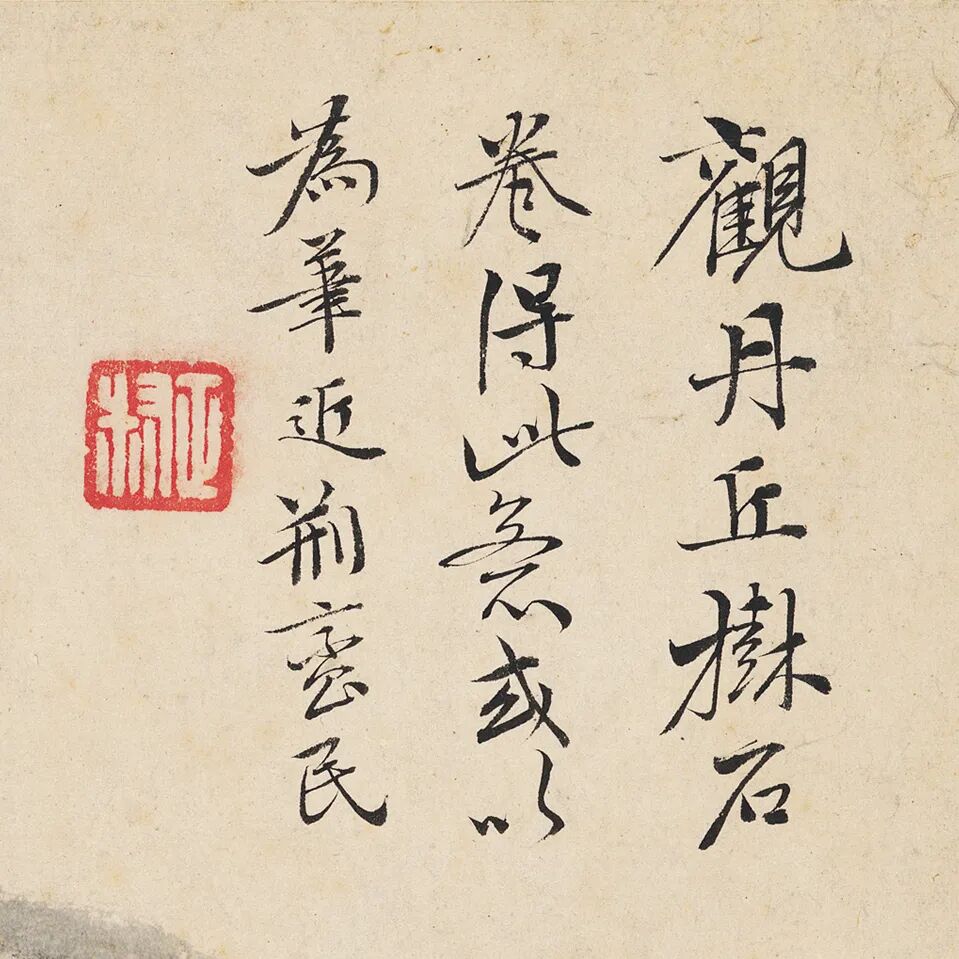 觀丹丘樹石
卷得此意或以
為筆近荊蠻民
正叔